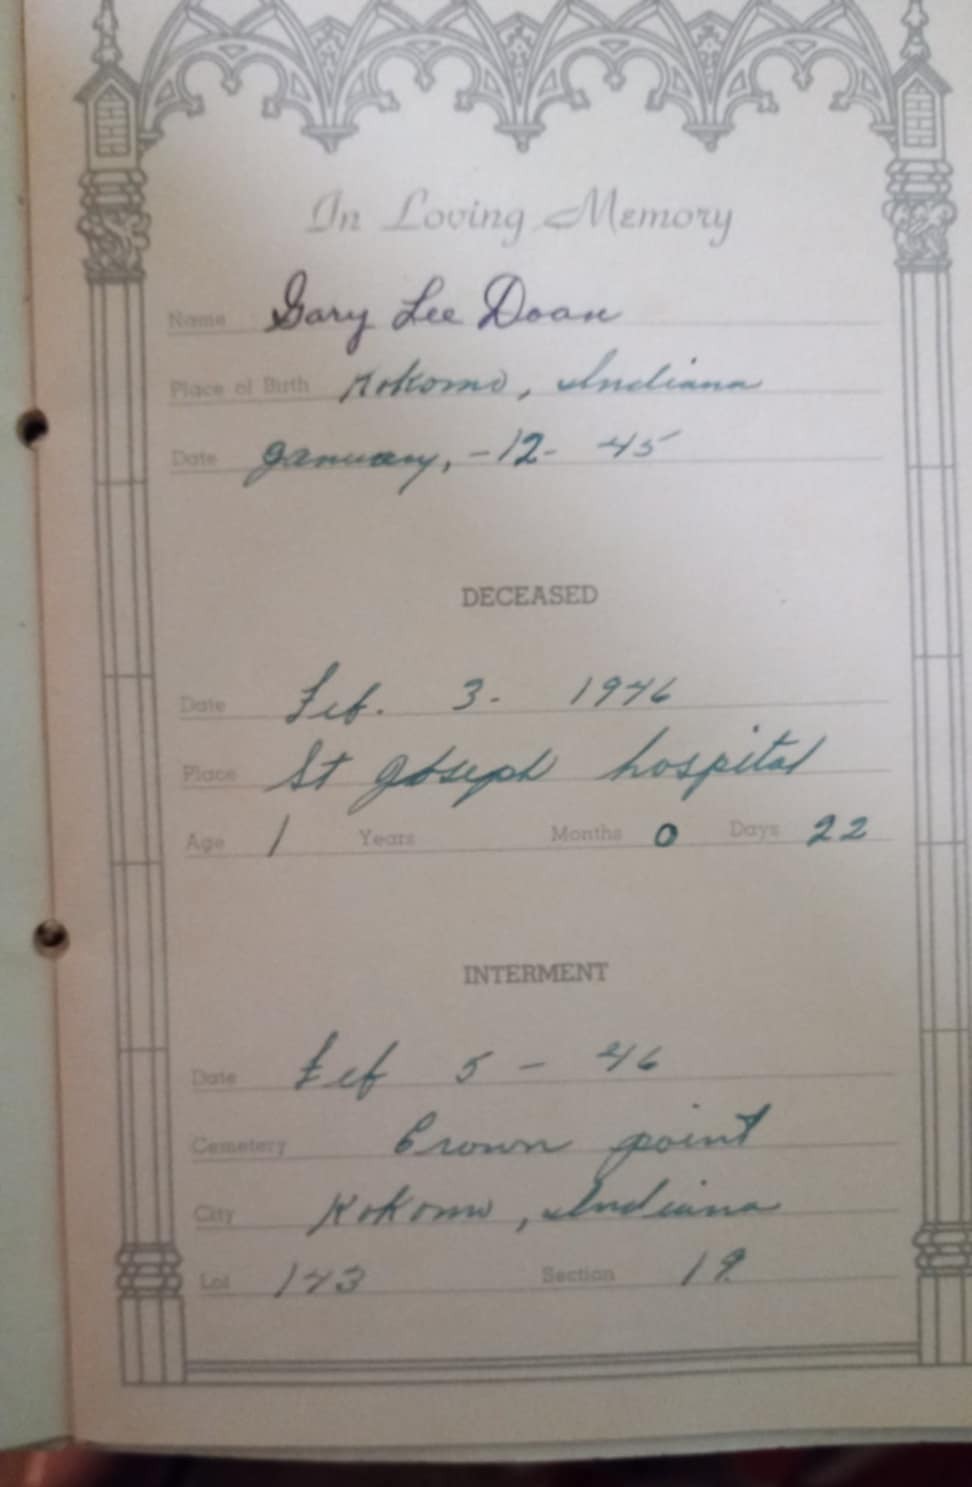 In Loving Memory
Name Gary Lee Doan
Place of Birth Kokomo, Indiana
Date January, -12- 45
DECEASED
Date Feb. 3. 1946
Place St Joseph hospital
Age 1 Years Months 0 Days 22
INTERMENT
Date Feb 5 - 46
Cemetery Crown point
City Kokomo, Indiana
Lot 143 Section 19